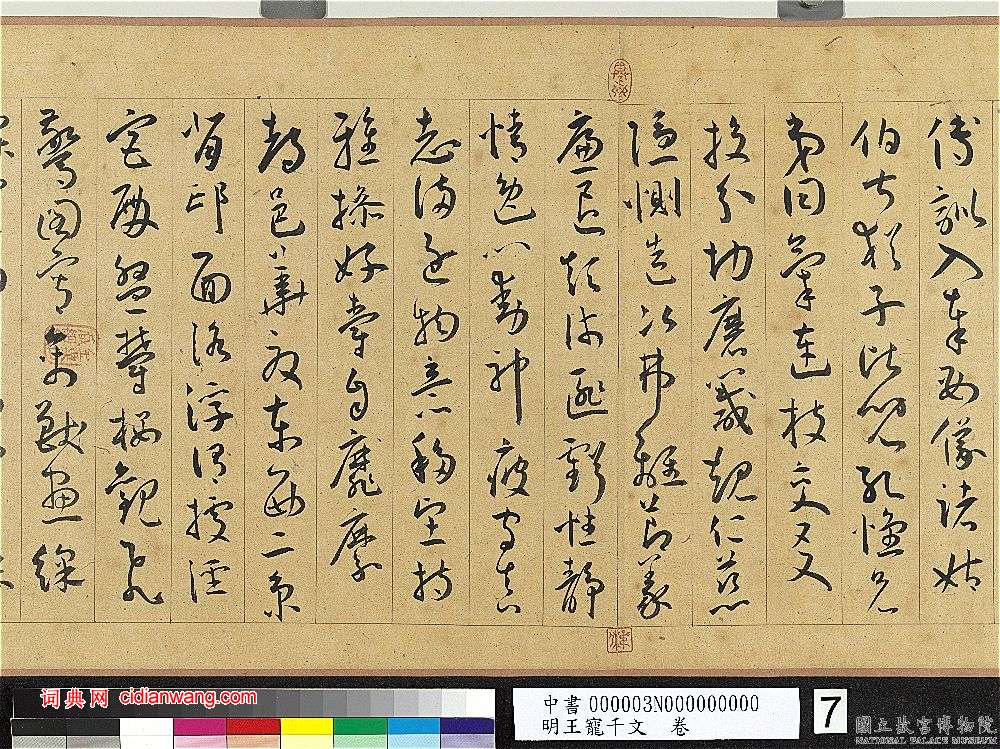 傅訓入奉母儀諸姑
伯叔猶子比兒孔懷兄
弟同氣連枝交友
投分切磨箴規仁慈
隱惻造次弗離節義
廉退顛沛匪虧性靜
情逸心動神疲守真
志滿逐物意移堅持
雅操好爵自靡縻
都邑華夏東西二京
背邙面洛浮渭據涇
宮殿盤鬱樓觀飛
驚圖寫禽獸畫綵
词典网 cidianwang.com
中書 000003N000000000
明王寵千文 卷
7
國立故宮博物院
NATIONAL PALACE MUSEUM